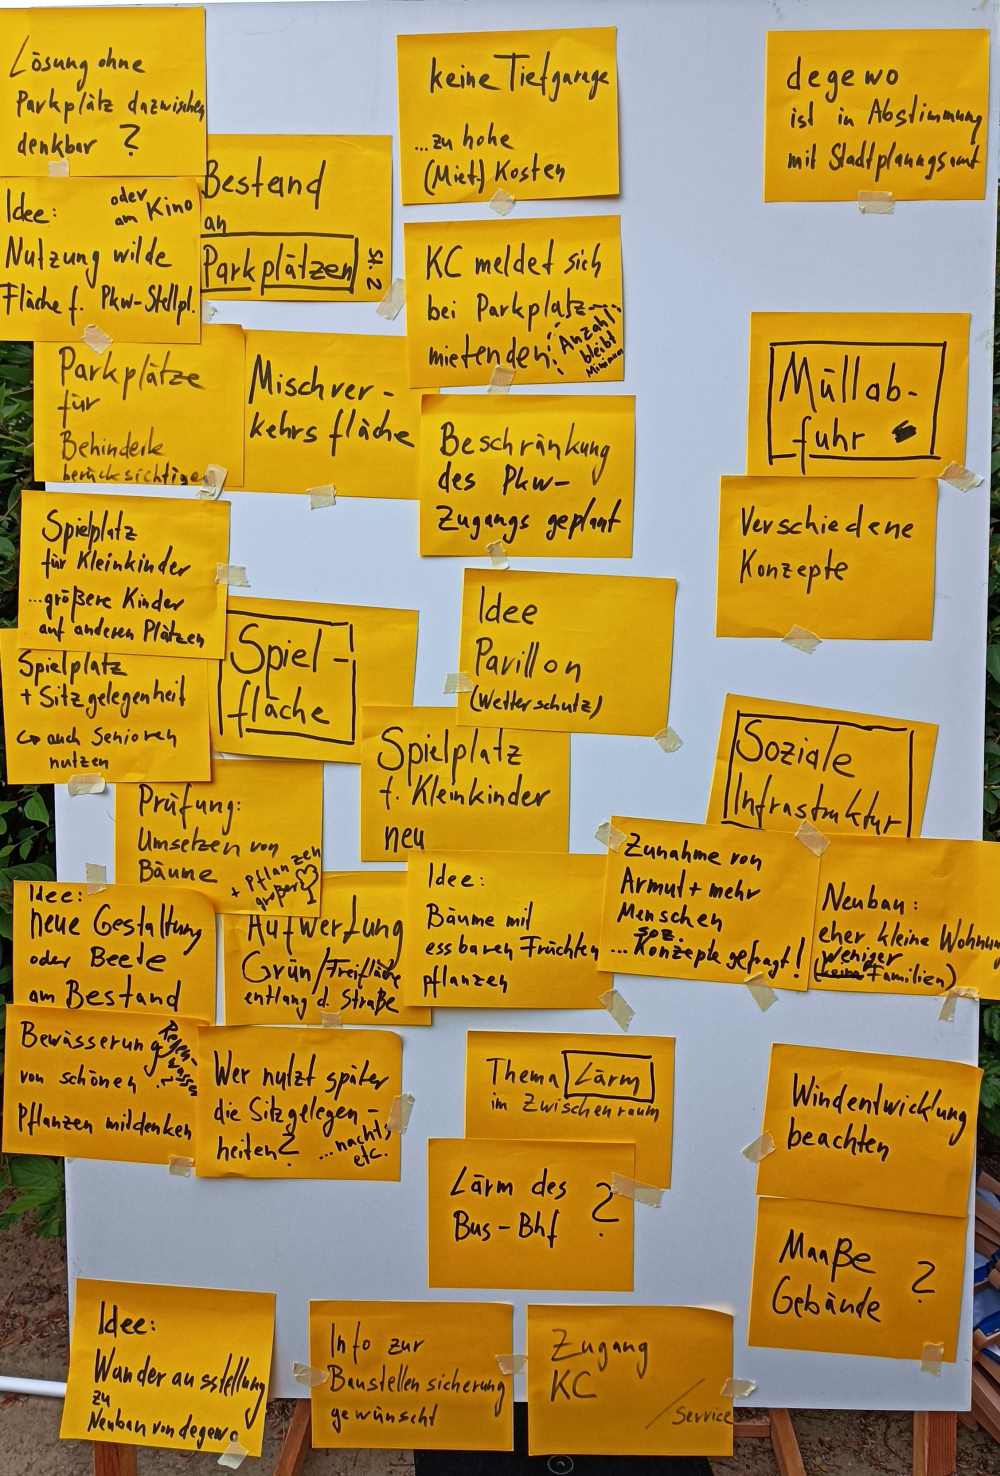 Lösung ohne
Parkplätz dazwischen
denkbar ?
Idee: oder am Kino
Nutzung wilde
Fläche f. Pkw-Stellpl.
Bestand
an
Parkplätzen
St. 2
Parkplätze
für
Behinderte
berücksichtigen
Mischver-
kehrsfläche
keine Tiefgarage
...zu hohe
(Miet-) Kosten
KC meldet sich
bei Parkplatz-
mietenden
Anzahl
bleibt
Minimum
Beschränkung
des Pkw-
Zugangs geplant
degewo
ist in Abstimmung
mit Stadtplanungsamt
Müllab-
fuhr
Verschiedene
Konzepte
Spielplatz
für Kleinkinder
...größere Kinder
auf anderen Plätzen
Spielplatz
+ Sitzgelegenheit
↪ auch Senioren
nutzen
Spiel-
fläche
Idee
Pavillon
(Wetterschutz)
Spielplatz
f. Kleinkinder
neu
Soziale
Infrastruktur
Zunahme von
Armut + mehr
Menschen
... soz. Konzepte gefragt!
Neubau:
eher kleine Wohnun
weniger
(keine Familien)
Prüfung:
Umsetzen von
Bäume
+ Pflanzen
großer
Idee:
neue Gestaltung
oder Beete
am Bestand
Aufwertung
Grün/Freifläche
entlang d. Straße
Idee:
Bäume mit
essbaren Früchten
pflanzen
Bewässerung
von schönen
Pflanzen mitdenken
Regen-
wasser
?
Wer nutzt später
die Sitzgelegen-
heiten?
...nachts
etc.
Thema Lärm
im Zwischenraum
Lärm des
Bus-Bhf ?
Windentwicklung
beachten
Maaße
Gebäude ?
Idee:
Wanderausstellung
zu
Neubau von degewo
Info zur
Baustellensicherung
gewünscht
Zugang
KC
/ Service